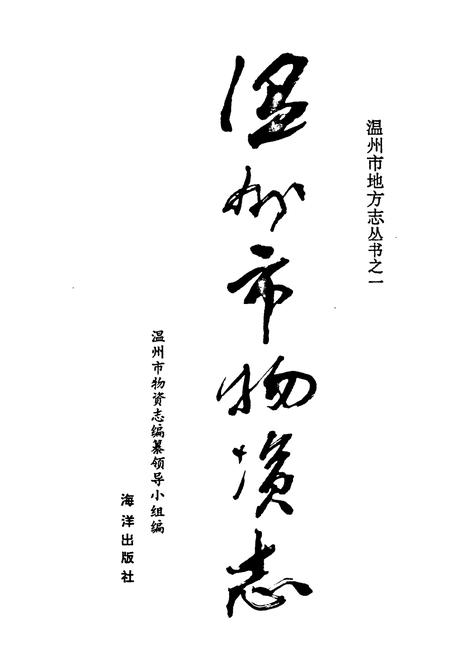 温州市地方志丛书之一
温州市物资志
温州市物资志编纂领导小组编
海洋出版社